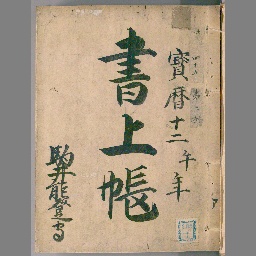 寳暦十二午年
書上帳
駒井能登守